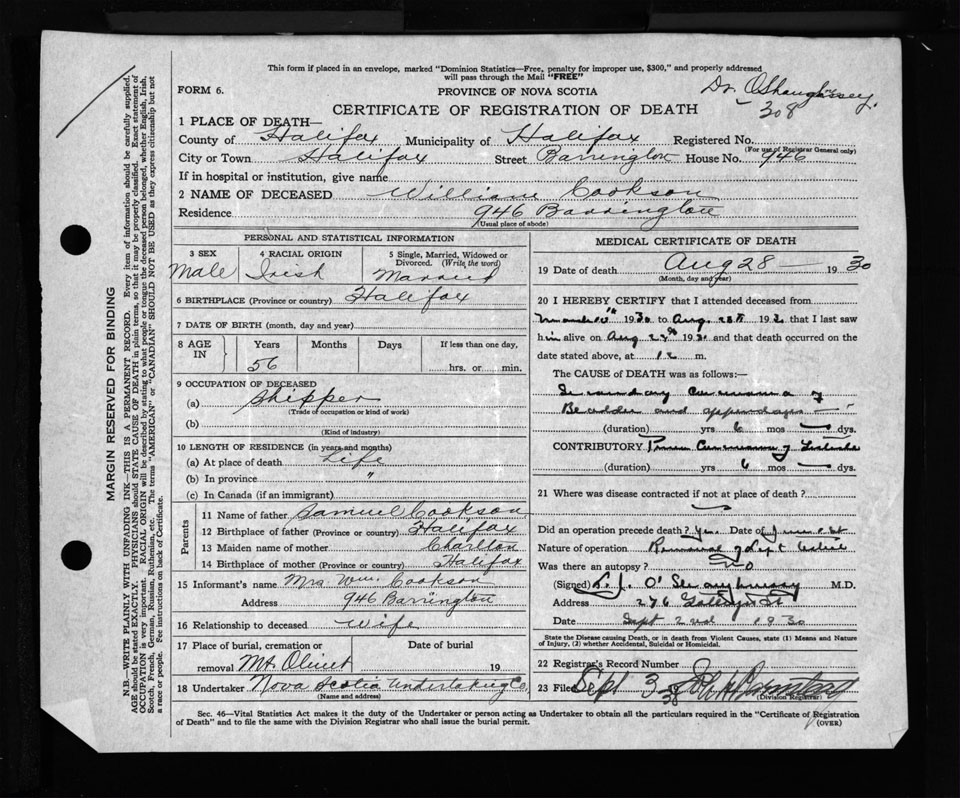 This form if placed in an envelope, marked "Dominion Statistics—Free, penalty for improper use, $300," and properly addressed
will pass through the Mail "FREE"
FORM 6.
PROVINCE OF NOVA SCOTIA
Dr. O'Shaughnessy
308
CERTIFICATE OF REGISTRATION OF DEATH
1 PLACE OF DEATH—
County of Halifax Municipality of Halifax Registered No.
(For use of Registrar General only)
City or Town Halifax Street Barrington House No. 946
If in hospital or institution, give name
2 NAME OF DECEASED William Cookson
Residence 946 Barrington
(Usual place of abode)
PERSONAL AND STATISTICAL INFORMATION
3 SEX 4 RACIAL ORIGIN 5 Single, Married, Widowed or
Divorced. (Write the word)
Male Irish Married
6 BIRTHPLACE (Province or country) Halifax
7 DATE OF BIRTH (month, day and year)
8 AGE IN Years Months Days If less than one day,
56 hrs. or min.
9 OCCUPATION OF DECEASED
(a) Shipper
(Trade of occupation or kind of work)
(b)
(Kind of industry)
10 LENGTH OF RESIDENCE (in years and months)
(a) At place of death Life
(b) In province "
(c) In Canada (if an immigrant)
Parents
11 Name of father Samuel Cookson
12 Birthplace of father (Province or country) Halifax
13 Maiden name of mother Charlton
14 Birthplace of mother (Province or country) Halifax
15 Informant's name Mrs Wm. Cookson
Address 946 Barrington
16 Relationship to deceased wife
17 Place of burial, cremation or Date of burial
removal Mt. Olivet 19
18 Undertaker Nova Scotia Undertaking Co.
(Name and address)
MEDICAL CERTIFICATE OF DEATH
19 Date of death Aug 28 1930
(Month, day and year)
20 I HEREBY CERTIFY that I attended deceased from
1930 to Aug. 28th 1930 that I last saw
him alive on Aug 1930 and that death occurred on the
date stated above, at 12 m.
The CAUSE of DEATH was as follows:—
Secondary Carcinoma of
Bladder and appendages
(duration) yrs 6 mos dys.
CONTRIBUTORY Carcinoma of Testicle
(duration) yrs 6 mos dys.
21 Where was disease contracted if not at place of death?
Did an operation precede death? Yes. Date of June 1st
Nature of operation Removal of left testicle
Was there an autopsy? No
(Signed) O'Shaughnessy M.D.
Address 276 Gottingen St
Date Sept 2nd 1930
State the Disease causing Death, or in death from Violent Causes, state (1) Means and Nature
of Injury, (2) whether Accidental, Suicidal or Homicidal.
22 Registrar's Record Number
23 Filed Sept 3 30
(Division Registrar)
Sec. 46—Vital Statistics Act makes it the duty of the Undertaker or person acting as Undertaker to obtain all the particulars required in the "Certificate of Registration
of Death" and to file the same with the Division Registrar who shall issue the burial permit.
(OVER)
MARGIN RESERVED FOR BINDING
N.B.—WRITE PLAINLY WITH UNFADING INK—THIS IS A PERMANENT RECORD. Every item of information should be carefully supplied.
AGE should be stated EXACTLY. PHYSICIANS should STATE CAUSE OF DEATH in plain terms, so that it may be properly classified. Exact statement of
OCCUPATION is very important. RACIAL ORIGIN will be described by stating to what people or tongue the deceased person belonged, whether English, Irish,
Scotch, French, German, Russian, Ruthenian, etc. The terms "AMERICAN" or "CANADIAN" SHOULD NOT BE USED as they express citizenship but not
a race or people. Fee instructions on back of Certificate.